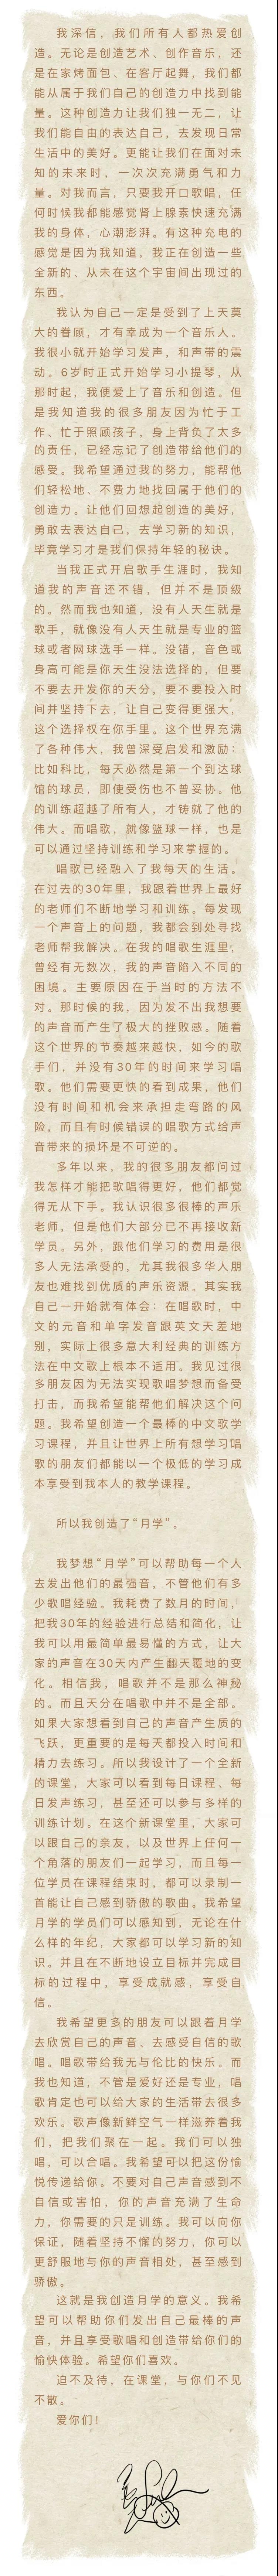 我深信，我们所有人都热爱创
造。无论是创造艺术、创作音乐，还
是在家烤面包、在客厅起舞，我们都
能从属于我们自己的创造力中找到能
量。这种创造力让我们独一无二，让
我们能自由的表达自己，去发现日常
生活中的美好。更能让我们在面对未
知的未来时，一次次充满勇气和力
量。对我而言，只要我开口歌唱，任
何时候我都能感觉肾上腺素快速充满
我的身体，心潮澎湃。有这种充电的
感觉是因为我知道，我正在创造一些
全新的、从未在这个宇宙间出现过的
东西。
我认为自己一定是受到了上天莫
大的眷顾，才有幸成为一个音乐人。
我很小就开始学习发声，和声带的震
动。6岁时正式开始学习小提琴，从
那时起，我便爱上了音乐和创造。但
是我知道我的很多朋友因为忙于工
作、忙于照顾孩子，身上背负了太多
的责任，已经忘记了创造带给他们的
感受。我希望通过我的努力，能帮他
们轻松地、不费力地找回属于他们的
创造力。让他们回想起创造的美好，
勇敢去表达自己，去学习新的知识，
毕竟学习才是我们保持年轻的秘诀。
当我正式开启歌手生涯时，我知
道我的声音还不错，但并不是顶级
的。然而我也知道，没有人天生就是
歌手，就像没有人天生就是专业的篮
球或者网球选手一样。没错，音色或
身高可能是你天生没法选择的，但要
不要去开发你的天分，要不要投入时
间并坚持下去，让自己变得更强大，
这个选择权在你手里。这个世界充满
了各种伟大，我曾深受启发和激励：
比如科比，每天必然是第一个到达球
馆的球员，即使受伤也不曾妥协。他
的训练超越了所有人，才铸就了他的
伟大。而唱歌，就像篮球一样，也是
可以通过坚持训练和学习来掌握的。
唱歌已经融入了我每天的生活。
在过去的30年里，我跟着世界上最好
的老师们不断地学习和训练。每发现
一个声音上的问题，我都会到处寻找
老师帮我解决。在我的唱歌生涯里，
曾经有无数次，我的声音陷入不同的
困境。主要原因在于当时的方法不
对。那时候的我，因为发不出我想要
的声音而产生了极大的挫败感。随着
这个世界的节奏越来越快，如今的歌
手们，并没有30年的时间来学习唱
歌。他们需要更快的看到成果，他们
没有时间和机会来承担走弯路的风
险，而且有时候错误的唱歌方式给声
音带来的损坏是不可逆的。
多年以来，我的很多朋友都问过
我怎样才能把歌唱得更好，他们都觉
得无从下手。我认识很多很棒的声乐
老师，但是他们大部分已不再接收新
学员。另外，跟他们学习的费用是很
多人无法承受的，尤其我很多华人朋
友也难找到优质的声乐资源。其实我
自己一开始就有体会：在唱歌时，中
文的元音和单字发音跟英文天差地
别，实际上很多意大利经典的训练方
法在中文歌上根本不适用。我见过很
多朋友因为无法实现歌唱梦想而备受
打击，而我希望能帮他们解决这个问
题。我希望创造一个最棒的中文歌学
习课程，并且让世界上所有想学习唱
歌的朋友们都能以一个极低的学习成
本享受到我本人的教学课程。
所以我创造了“月学”。
我梦想“月学”可以帮助每一个人
去发出他们的最强音，不管他们有多
少歌唱经验。我耗费了数月的时间，
把我30年的经验进行总结和简化，让
我可以用最简单最易懂的方式，让大
家的声音在30天内产生翻天覆地的变
化。相信我，唱歌并不是那么神秘
的。而且天分在唱歌中并不是全部。
如果大家想看到自己的声音产生质的
飞跃，更重要的是每天都投入时间和
精力去练习。所以我设计了一个全新
的课堂，大家可以看到每日课程、每
日发声练习，甚至还可以参与多样的
训练计划。在这个新课堂里，大家可
以跟自己的亲友，以及世界上任何一
个角落的朋友们一起学习，而且每一
位学员在课程结束时，都可以录制一
首能让自己感到骄傲的歌曲。我希望
月学的学员们可以感知到，无论在什
么样的年纪，大家都可以学习新的知
识。并且在不断地设立目标并完成目
标的过程中，享受成就感，享受自
信。
我希望更多的朋友可以跟着月学
去欣赏自己的声音、去感受自信的歌
唱。唱歌带给我无与伦比的快乐。而
我也知道，不管是爱好还是专业，唱
歌肯定也可以给大家的生活带去很多
欢乐。歌声像新鲜空气一样滋养着我
们，把我们聚在一起。我们可以独
唱，可以合唱。我希望可以把这份愉
悦传递给你。不要对自己声音感到不
自信或害怕，你的声音充满了生命
力，你需要的只是训练。我可以向你
保证，随着坚持不懈的努力，你可以
更舒服地与你的声音相处，甚至感到
骄傲。
这就是我创造月学的意义。我希
望可以帮助你们发出自己最棒的声
音，并且享受歌唱和创造带给你们的
愉快体验。希望你们喜欢。
迫不及待，在课堂，与你们不见
不散。
爱你们！